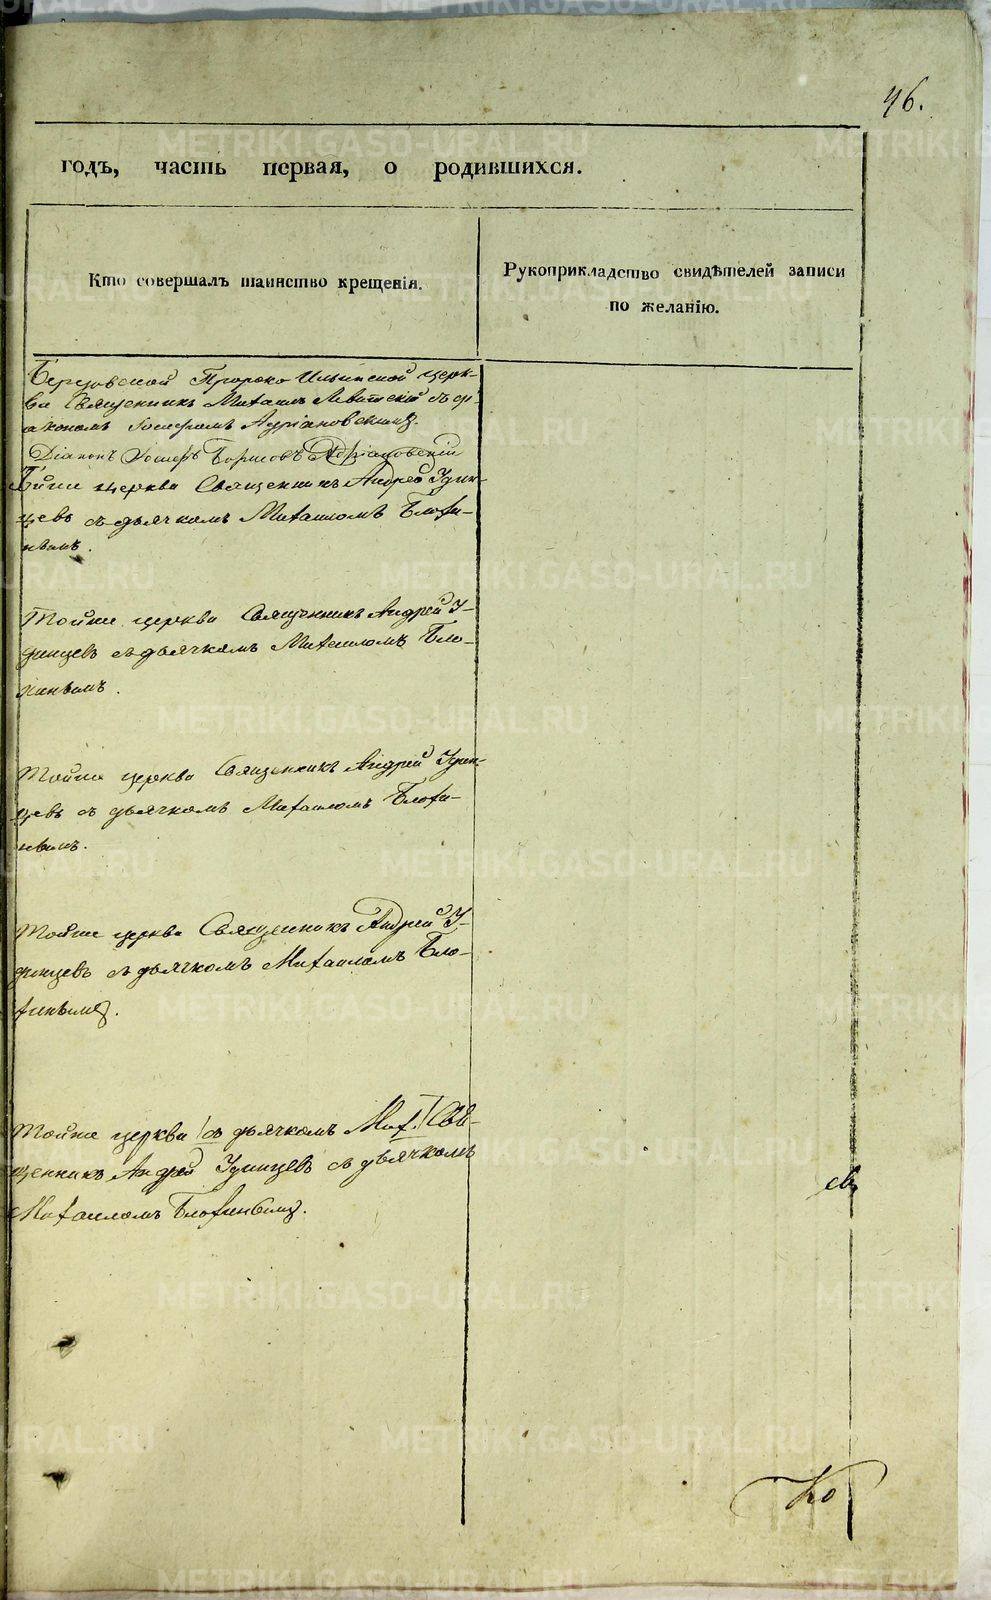 46.
годъ, часть первая, о родившихся.
Кто совершалъ таинство крещенія.
Рукоприкладство свидѣтелей записи
по желанію.
Пророко Ильинской церк-
ви Священникъ Михаилъ Левитскій съ ді-
акономъ Іосифомъ Адріановскимъ.
Діаконъ Іосифъ Борисовъ Адріановскій
Тойже церкви Священникъ Андрей Удин-
цевъ съ дьячкомъ Михаиломъ Блохи-
нымъ.
Тойже церкви Священникъ Андрей У-
динцевъ съ дьячкомъ Михаиломъ Бло-
хинымъ.
Тойже церкви Священникъ Андрей Удин-
цевъ съ дьячкомъ Михаиломъ Блохи-
нымъ.
Тойже церкви Священникъ Андрей У-
динцевъ съ дьячкомъ Михаиломъ Бло-
хинымъ.
Тойже церкви съ дьячкомъ Мих. Свя-
щенникъ Андрей Удинцевъ съ дьячкомъ
Михаиломъ Блохинымъ.
Ко
METRIKI.GASO-URAL.RU